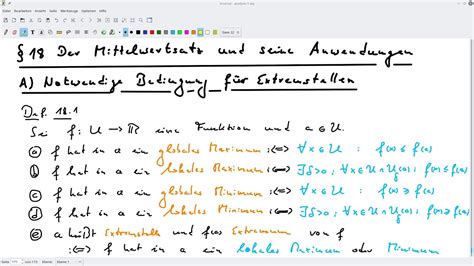 Datei Bearbeiten Ansicht
§ 18 Der Mittelwertsatz und seine Anwendungen
A) Notwendige Bedingung für Extremstellen
Def. 18.1
Sei f: U → ℝ eine Funktion und a ∈ U.
ⓐ f hat in a ein globales Maximum :⇔ ∀ x ∈ U : f(x) ≤ f(a)
ⓑ f hat in a ein lokales Maximum :⇔ ∃ δ>0, ∀ x ∈ U ∩ U_δ(a) : f(x) ≤ f(a)
ⓒ f hat in a ein globales Minimum :⇔ ∀ x ∈ U : f(x) ≥ f(a)
ⓓ f hat in a ein lokales Minimum :⇔ ∃ δ>0, ∀ x ∈ U ∩ U_δ(a) : f(x) ≥ f(a)
ⓔ a heißt Extremstelle und f(a) Extremum von f
:⇔ f hat in a ein lokales Maximum oder Minimum